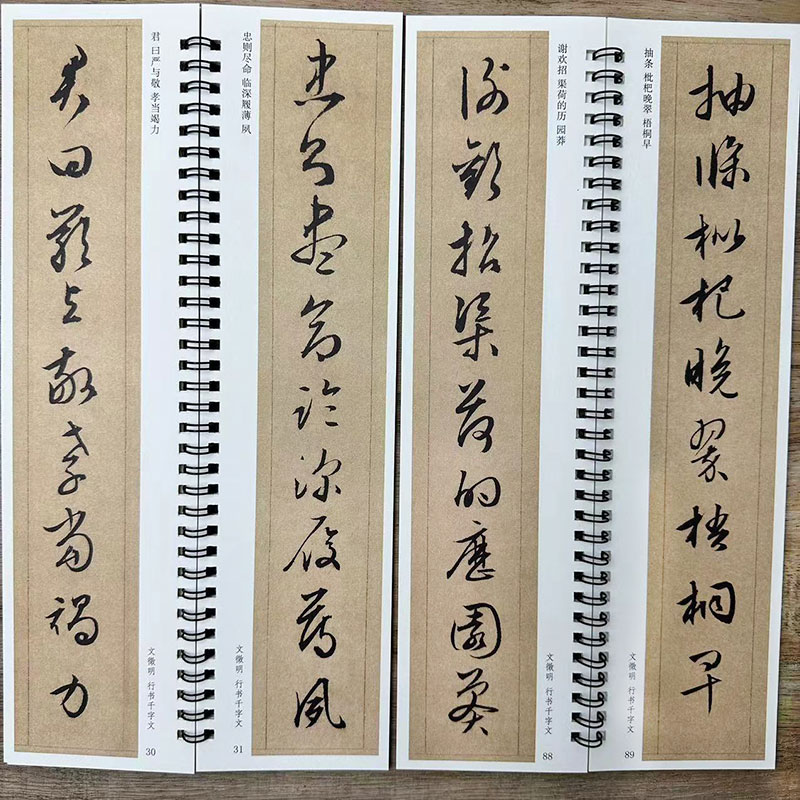 君曰嚴与敬孝當竭力
君 曰严与敬 孝当竭力
文徵明 行书千字文
30
忠则尽命 临深履薄 夙
忠則盡命臨深履薄夙
文徵明 行书千字文
31
謝歡招渠荷的歷園莽
谢欢招 渠荷的历 园莽
文徵明 行书千字文
88
抽条 枇杷晚翠 梧桐早
抽條枇杷晚翠梧桐早
文徵明 行书千字文
89